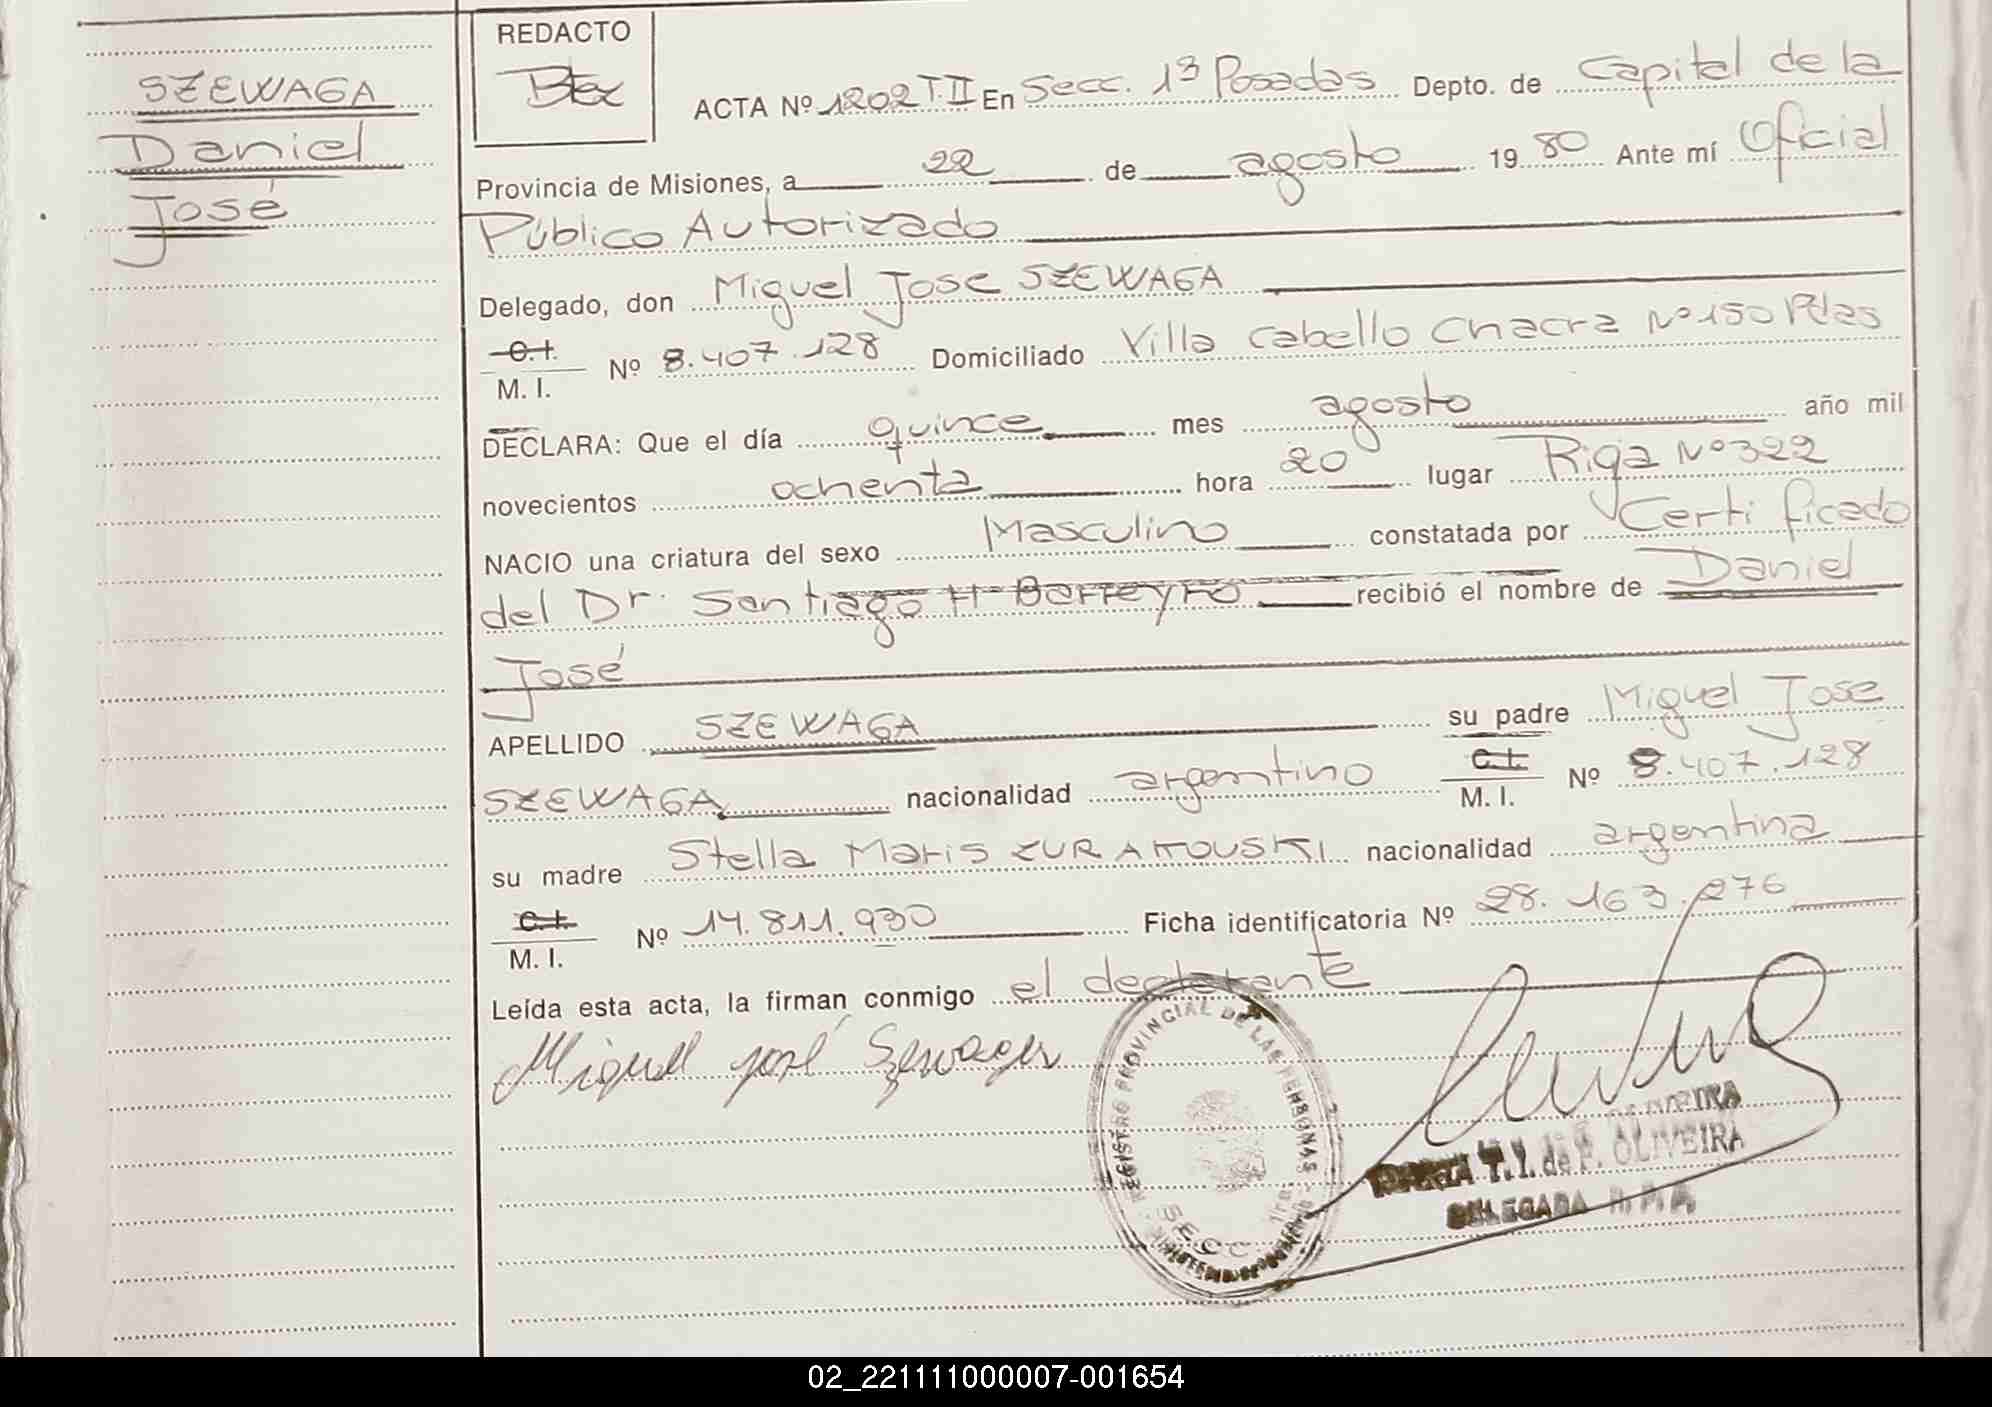 SZEWAGA
Daniel
José
REDACTO
ACTA Nº 1202 T.II En Secc. 1ª Posadas Depto. de Capital de la
Provincia de Misiones, a 22 de agosto 19 80 Ante mí Oficial
Público Autorizado
Delegado, don Miguel Jose SZEWAGA
C.I. M. I. Nº 8.407.128 Domiciliado Villa Cabello Chacra Nº 150 Pdas
DECLARA: Que el día quince mes agosto año mil
novecientos ochenta hora 20 lugar Riga Nº 322
NACIO una criatura del sexo Masculino constatada por Certificado
del Dr. Santiago H Barreyro recibió el nombre de Daniel
José
APELLIDO SZEWAGA su padre Miguel Jose
SZEWAGA nacionalidad argentino C.I. M. I. Nº 8.407.128
su madre Stella Maris ZURAKOUSKI nacionalidad argentina
C.I. M. I. Nº 14.811.930 Ficha identificatoria Nº 28.163.276
Leída esta acta, la firman conmigo el declarante
Miguel José Szewaga
REGISTRO PROVINCIAL DE LAS PERSONAS
SECC. 1ra
T. I. de F. OLIVEIRA
DELEGADA R.P.P.
02_221111000007-001654